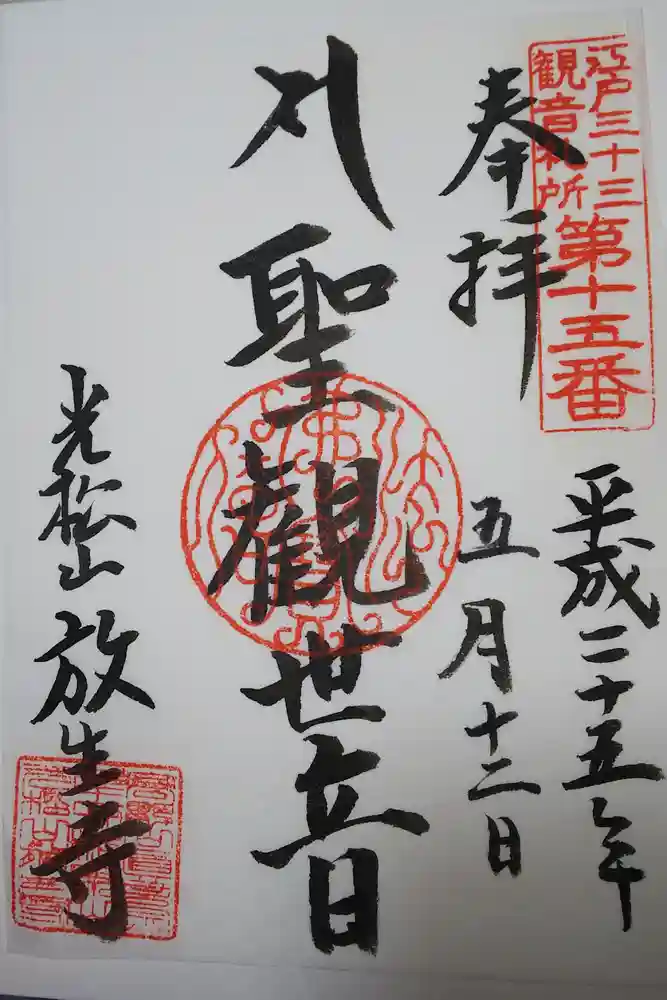 江戸三十三
観音札所
第十五番
奉拝
平成二十五年
五月十二日
聖観世音
光松山放生寺